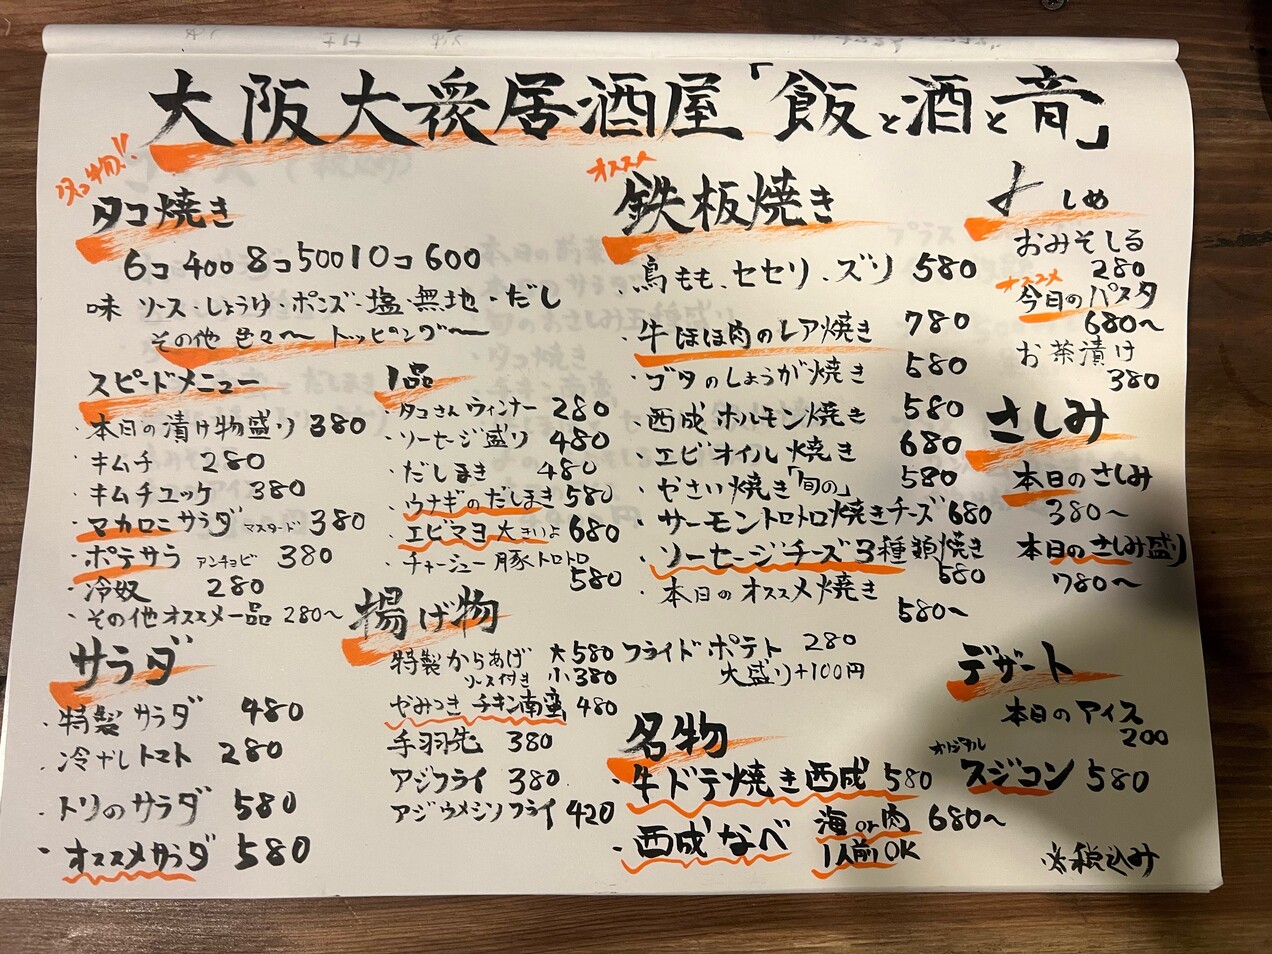 大阪大衆居酒屋「飯と酒と音」
名物!!
タコ焼き
6コ 400 8コ 500 10コ 600
味 ソース・しょうゆ・ポンズ・塩・無地・だし
その他 色々〜 トッピング〜
スピードメニュー
・本日の漬け物盛り 380
・キムチ 280
・キムチユッケ 380
・マカロニサラダ マスタード 380
・ポテサラ アンチョビ 380
・冷奴 280
・その他オススメ一品 280〜
サラダ
・特製サラダ 480
・冷やしトマト 280
・トリのサラダ 580
・オススメサラダ 580
1品
・タコさんウィンナー 280
・ソーセージ盛り 480
・だしまき 480
・ウナギのだしまき 580
・エビマヨ 大きいよ 680
・チャーシュー 豚トロトロ
580
揚げ物
特製からあげ 大 580
ソース付き 小 380
やみつきチキン南蛮 480
手羽先 380
アジフライ 380
アジウメシソフライ 420
フライドポテト 280
大盛り+100円
オススメ
鉄板焼き
・鳥もも、セセリ、ズリ 580
・牛ほほ肉のレア焼き 780
・ブタのしょうが焼き 580
・西成ホルモン焼き 580
・エビオイル焼き 680
・やさい焼き「旬の」 580
・サーモントロトロ焼きチーズ 680
・ソーセージチーズ3種類焼き
580
・本日のオススメ焼き
580〜
名物
・牛ドテ焼き西成 580
・西成なべ 海or肉 680〜
1人前OK
〆 しめ
おみそしる
280
オススメ
今日のパスタ
680〜
お茶漬け
380
さしみ
本日のさしみ
380〜
本日のさしみ盛り
780〜
デザート
本日のアイス
200
オリジナル
スジコン 580
※税込み